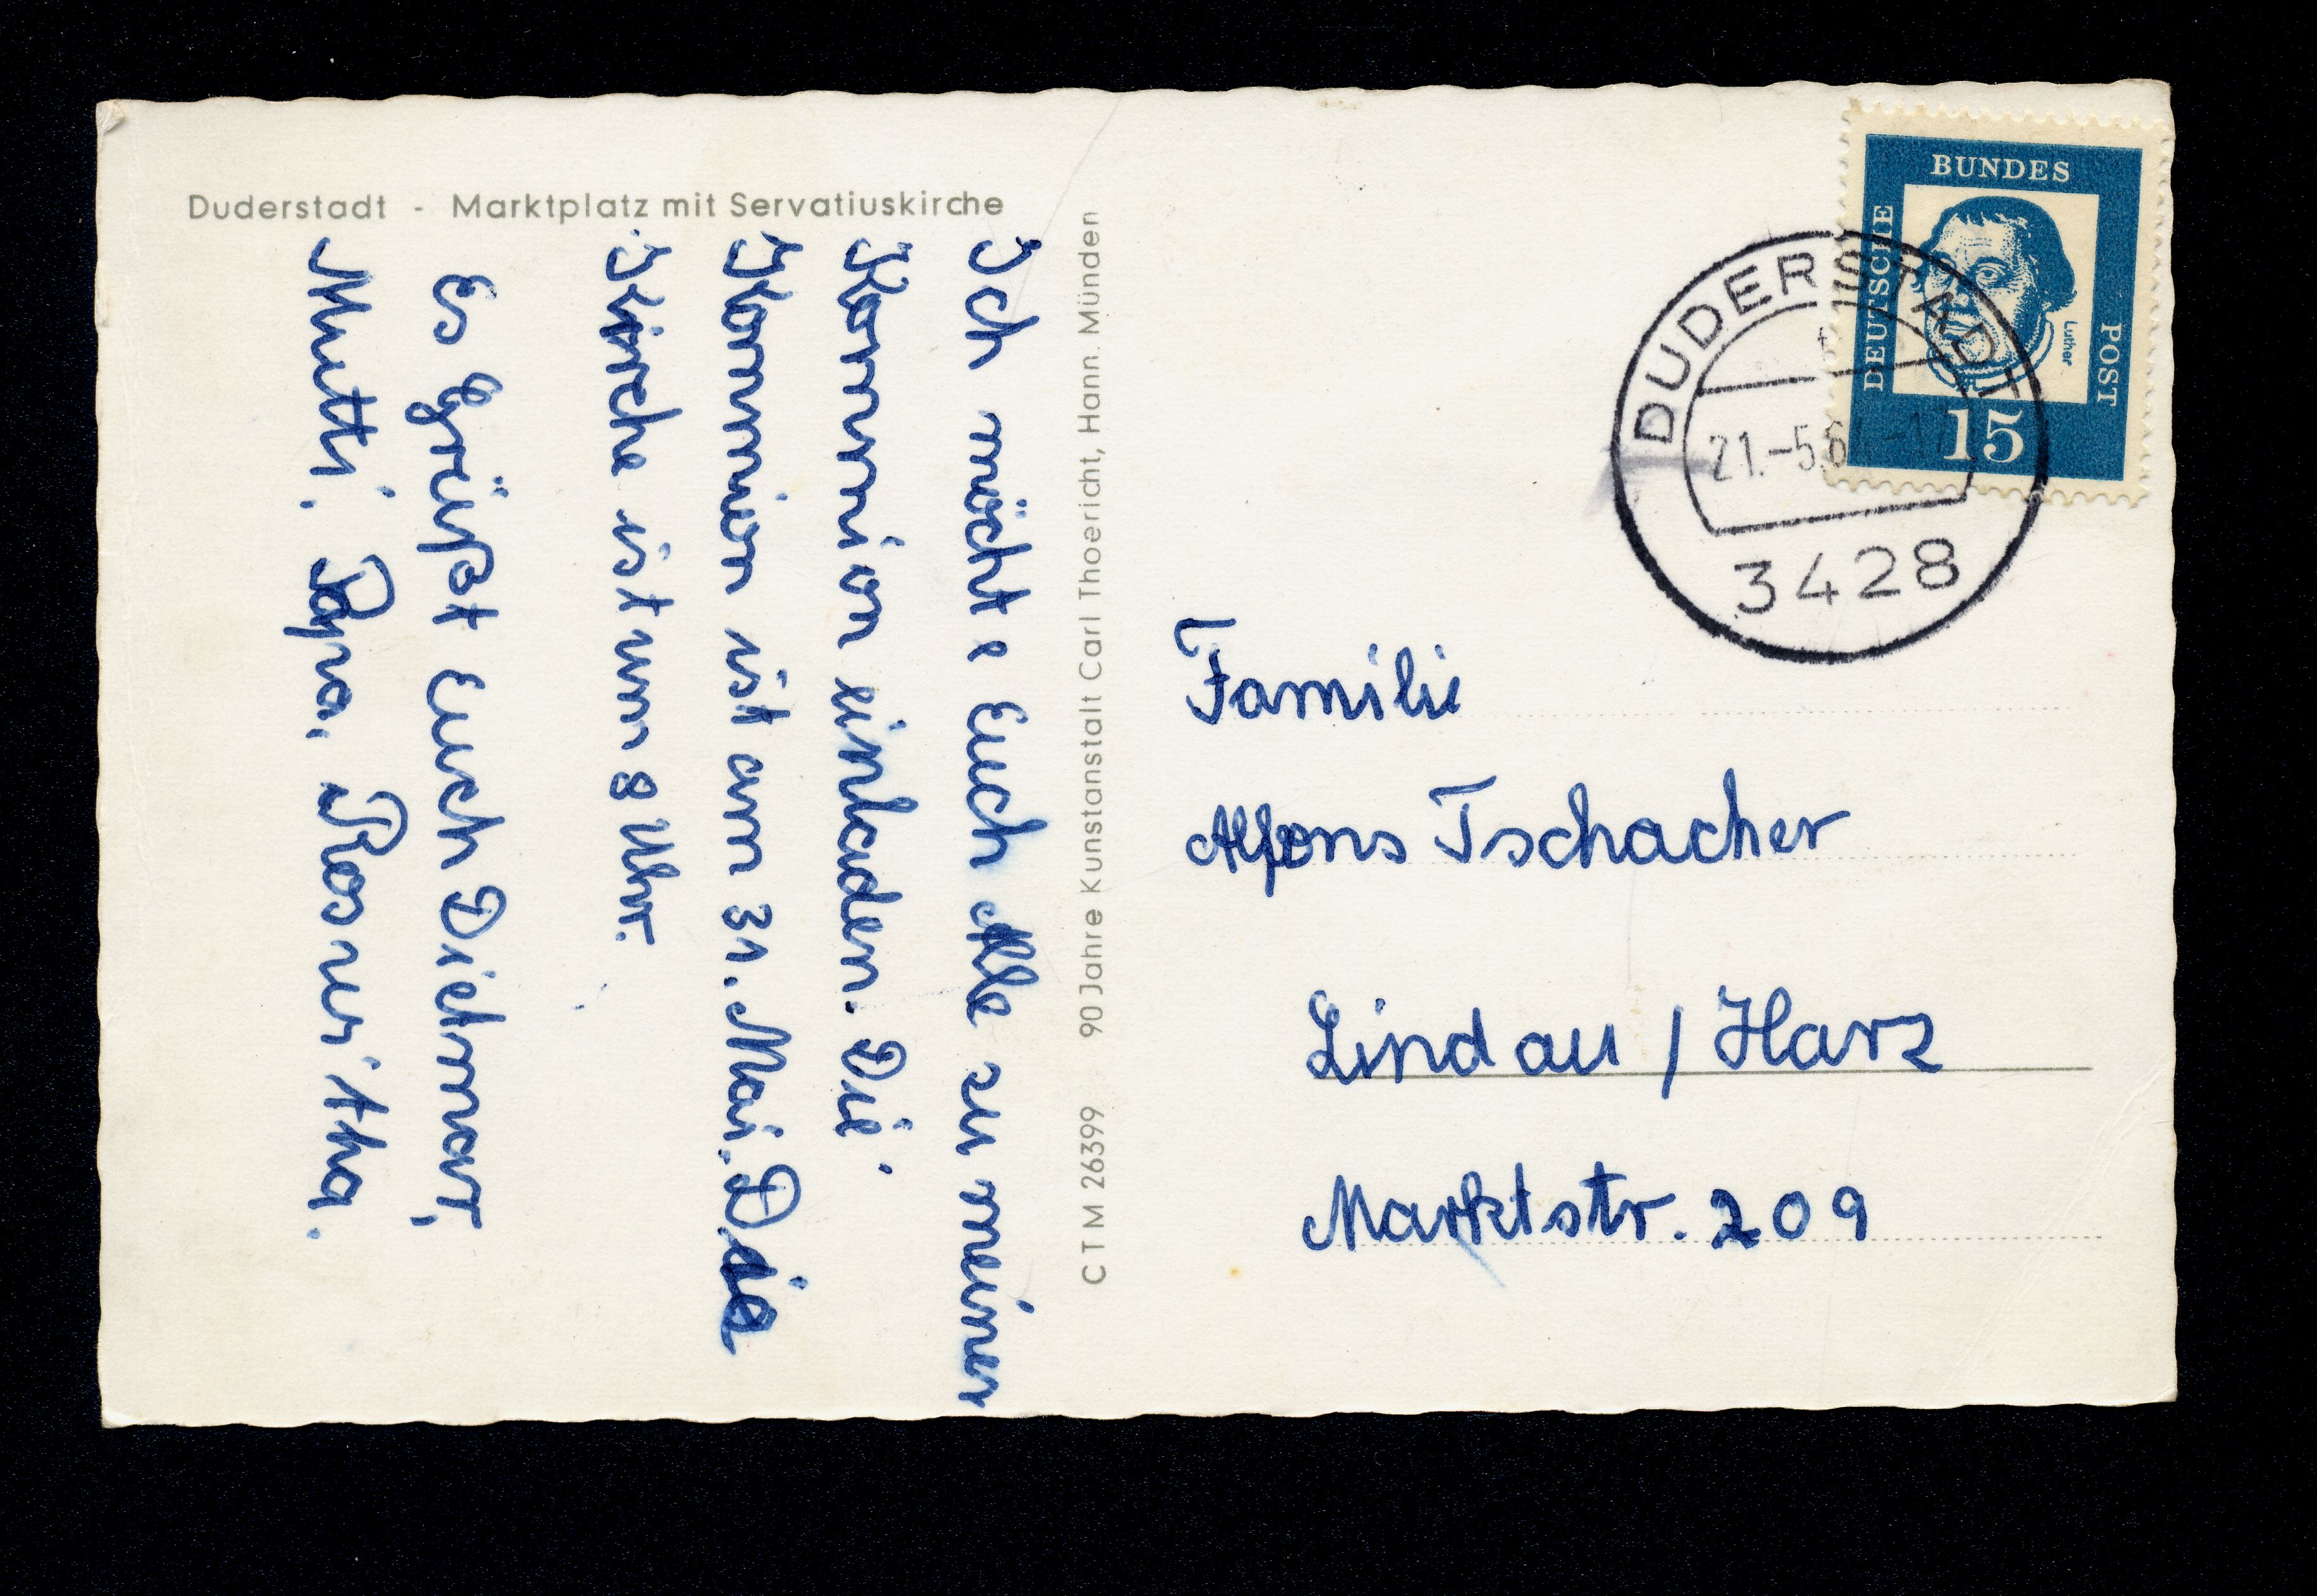 Duderstadt - Marktplatz mit Servatiuskirche
Ich möchte Euch Alle zu meiner
Kommion einladen. Die
Kommion ist am 31. Mai. Die
Kirche ist um 8 Uhr.
Es Grüßt Euch Dietmar,
Mutti, Papa, Roswitha.
CTM 26399 90 Jahre Kunstanstalt Carl Thoericht, Hann. Münden
DEUTSCHE
BUNDES
POST
Luther
15
DUDERSTADT
21.-5.6
3428
Familie
Alfons Tschacher
Lindau / Harz
Marktstr. 209